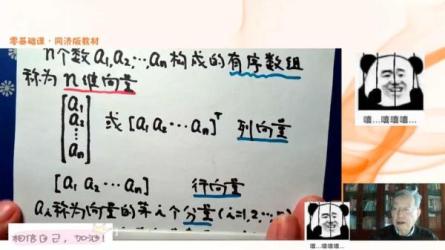 零基础课·同济版教材
n个数a₁,a₂,…,aₙ构成的有序数组
称为n维向量
[a₁ a₂ ⋮ aₙ] 或 [a₁ a₂ … aₙ]ᵀ 列向量
[a₁ a₂ … aₙ] 行向量
aᵢ称为向量的第i个分量(i=1,2,…,n)
相信自己,加油!
嘻...嘻嘻嘻...
嘻...嘻嘻嘻...